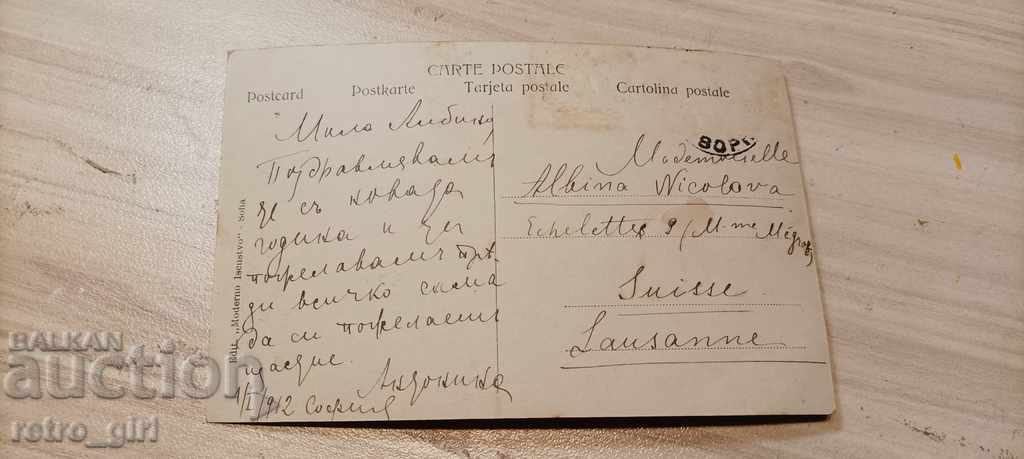 CARTE POSTALE
Postcard Postkarte Tarjeta postale Cartolina postale
Мила Албино,
Поздравлявамъ
те съ новата
годинка и ти
пожелавамъ прѣ-
ди всичко сама
да си пожелаешъ
щастие.
Андоника
1/I 912 София
Edit. „Moderno Iscustvo" - Sofia
Mademoiselle
Albina Nicolova
Echelettes 9 (M-me
Suisse
Lausanne
BALKAN
auction
retro_girl